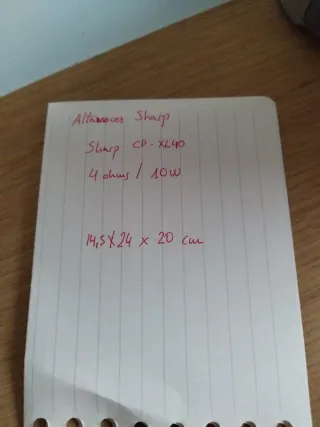 Altavoces Sharp
Sharp CP-XL40
4 ohms / 10W
14,5 x 24 x 20 cm